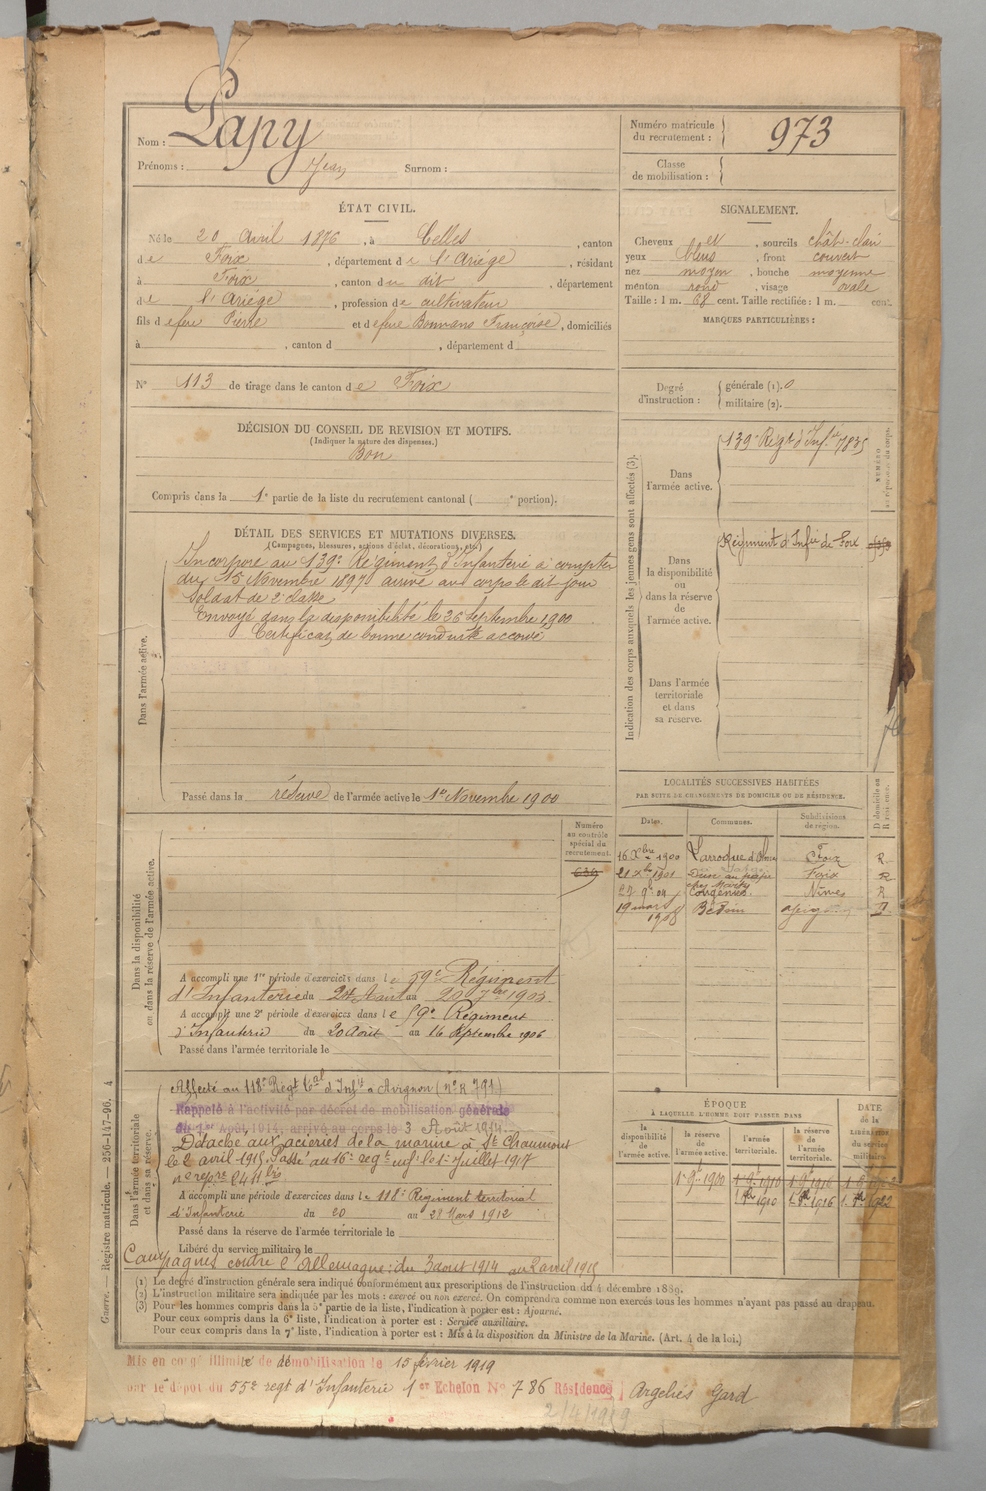 Nom : Papy
Prénoms : Jean Surnom :
Numéro matricule du recrutement : 973
Classe de mobilisation :
ÉTAT CIVIL.
Né le 20 Avril 1876, à Celles, canton
de Foix, département de l'Ariège, résidant
à Foix, canton du dit, département
de l'Ariège, profession de cultivateur
fils de feu Pierre et de feue Françoise, domiciliés
à , canton d , département d
N° 113 de tirage dans le canton de Foix
SIGNALEMENT.
Cheveux et , sourcils chât-clair
yeux bleus, front couvert
nez moyen, bouche moyenne
menton rond, visage ovale
Taille : 1 m. 68 cent. Taille rectifiée : 1 m. cent.
MARQUES PARTICULIÈRES :
Degré d'instruction : générale (1). 0
militaire (2).
DÉCISION DU CONSEIL DE REVISION ET MOTIFS.
(Indiquer la nature des dispenses.)
Bon
Compris dans la 1e partie de la liste du recrutement cantonal ( e portion).
DÉTAIL DES SERVICES ET MUTATIONS DIVERSES.
(Campagnes, blessures, actions d'éclat, décorations, etc.)
Dans l'armée active.
Incorporé au 139e Régiment d'Infanterie à compter
du 15 Novembre 1897 arrivé au corps le dit jour
Soldat de 2e classe
Envoyé dans la disponibilité le septembre 1900
Certificat de bonne conduite accordé
Passé dans la réserve de l'armée active le 1er Novembre 1900
Indication des corps auxquels les jeunes gens sont affectés (3).
NUMÉRO
Dans l'armée active.
139e Régt d'Infie 7835
Dans la disponibilité ou dans la réserve de l'armée active.
Régiment d'Infie de Foix
Dans l'armée territoriale et dans sa réserve.
LOCALITÉS SUCCESSIVES HABITÉES
PAR SUITE DE CHANGEMENTS DE DOMICILE OU DE RÉSIDENCE.
Dates. Communes. Subdivisions de région. D domicile ou R résidence.
16 Xbre 1900 Larroque d'Olmes Foix R
21 Xbre 1901 Foix R
27 9bre 04 Congénies Nimes R
19 mars 1908
Dans la disponibilité ou dans la réserve de l'armée active.
Numéro au contrôle spécial du recrutement.
A accompli une 1re période d'exercices dans le 59e Régiment
d'Infanterie du 24 Août au 20 7bre 1903.
A accompli une 2e période d'exercices dans le 59e Régiment
d'Infanterie du 20 Août au 16 Septembre 1906
Passé dans l'armée territoriale le
Dans l'armée territoriale et dans sa réserve.
Affecté au 118e Régt tal d'Infie à Avignon (n° R 791)
Rappelé à l'activité par décret de mobilisation générale
du 1er Août 1914, arrivé au corps le 3 Août 1914.
Détaché aux acieries de la marine à St Chaumont
le 2 avril 1915. Passé au 16e regt le 1er Juillet 1917
A accompli une période d'exercices dans le 118e Régiment territorial
d'Infanterie du 20 au 28 Mars 1912
Passé dans la réserve de l'armée territoriale le
Libéré du service militaire le
Campagnes contre l'Allemagne : du 3 aout 1914 au 2 avril 1915
ÉPOQUE
À LAQUELLE L'HOMME DOIT PASSER DANS
DATE DE LA LIBÉRATION du service militaire.
la disponibilité de l'armée active. la réserve de l'armée active. l'armée territoriale. la réserve de l'armée territoriale.
1er 9bre 1900 1er 9bre 1910 1er 9bre 1916
1er 8bre 1910 1er 8bre 1916 1er 8bre 1922
(1) Le degré d'instruction générale sera indiqué conformément aux prescriptions de l'instruction du 4 décembre 1889.
(2) L'instruction militaire sera indiquée par les mots : exercé ou non exercé. On comprendra comme non exercés tous les hommes n'ayant pas passé au drapeau.
(3) Pour les hommes compris dans la 5e partie de la liste, l'indication à porter est : Ajourné.
Pour ceux compris dans la 6e liste, l'indication à porter est : Service auxiliaire.
Pour ceux compris dans la 7e liste, l'indication à porter est : Mis à la disposition du Ministre de la Marine. (Art. 4 de la loi.)
Guerre. — Registre matricule. — 256-147-96. 4
Mis en congé illimité de démobilisation le 15 février 1919
par le dépôt du 55e regt d'Infanterie 1er Echelon No 786 Résidence Argeliès Gard
2/4/1919